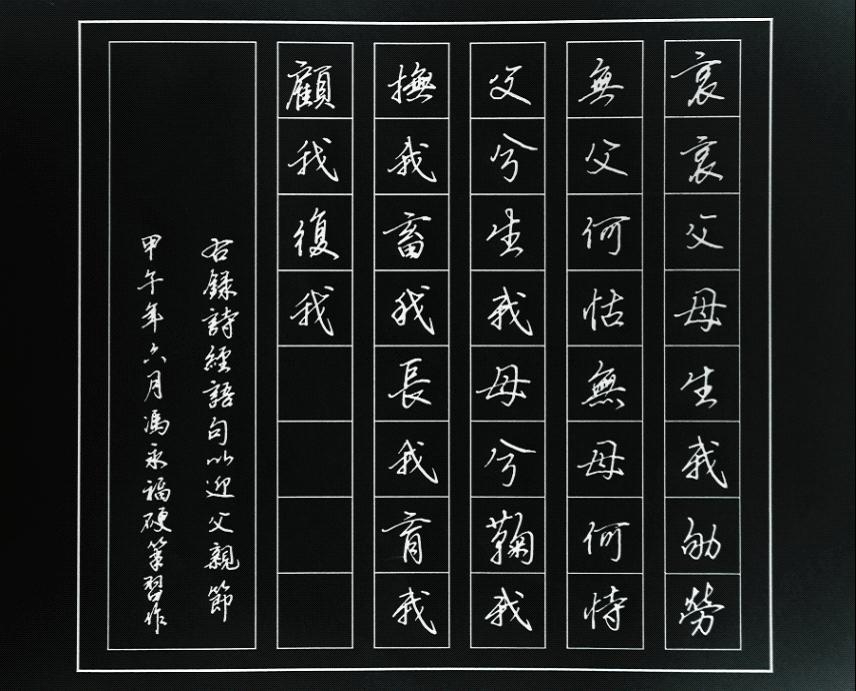 哀哀父母生我劬勞
無父何怙無母何恃
父兮生我母兮鞠我
撫我畜我長我育我
顧我復我
右錄詩經語句以迎父親節
甲午年六月馮永福硬筆習作